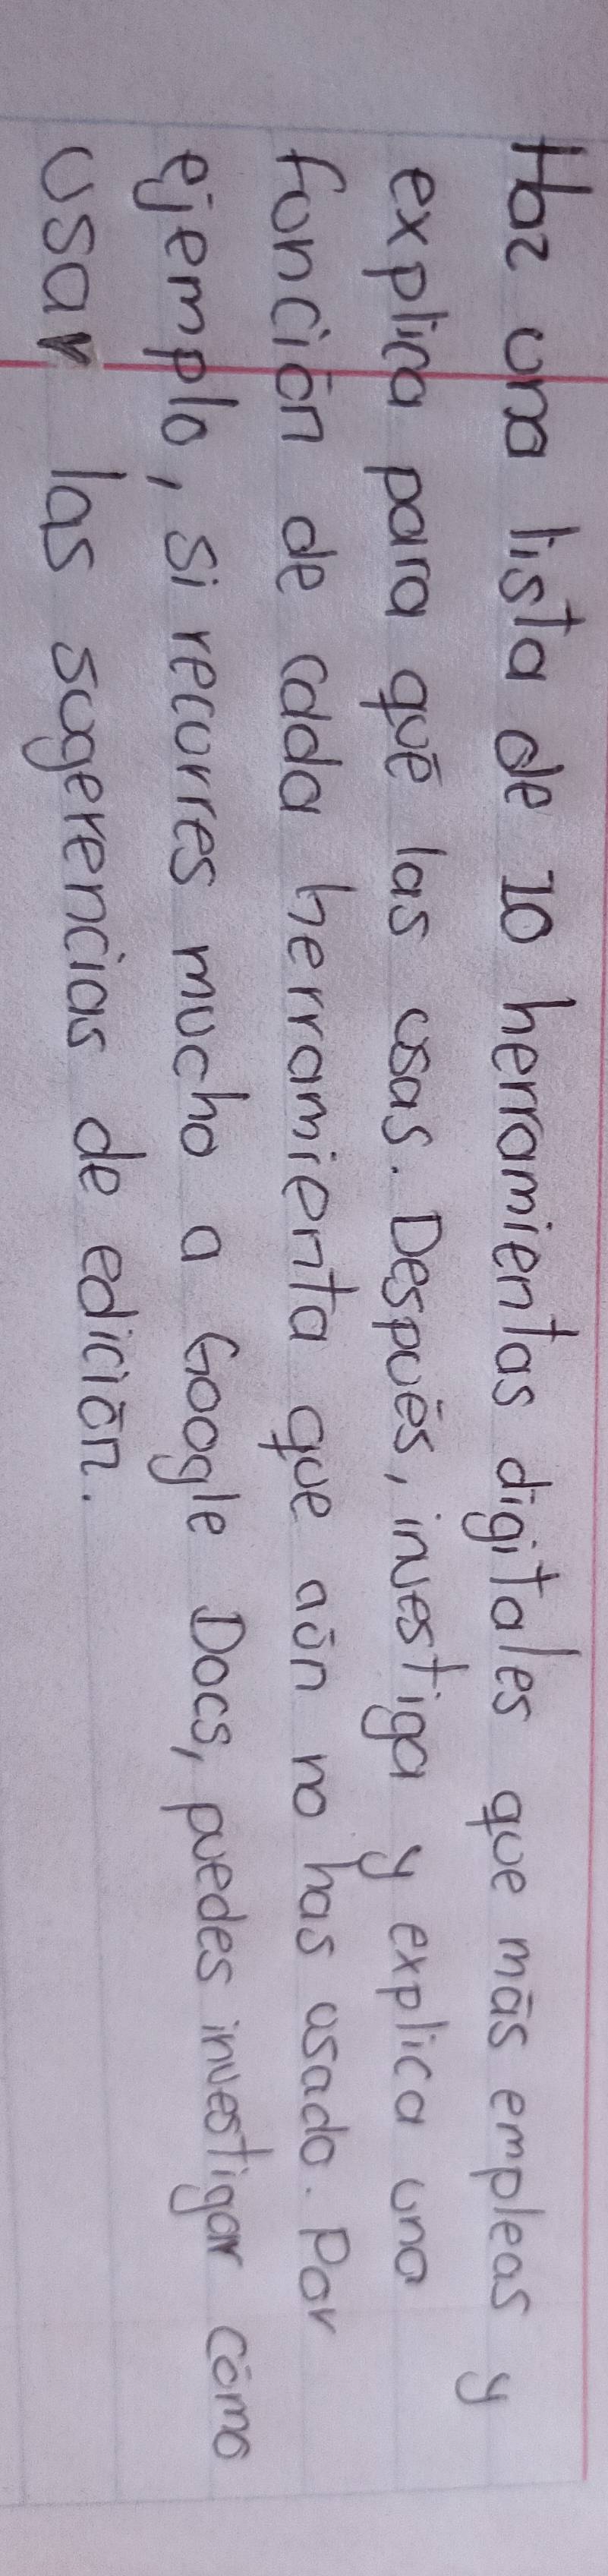 Haz una lista de 10 herramientas digitales que más empleas y
explica para qué las usas. Después, investiga y explica una
función de cada herramienta que aún no has usado. Por
ejemplo, si recurres mucho a Google Docs, puedes investigar cómo
usar las sugerencias de edición.